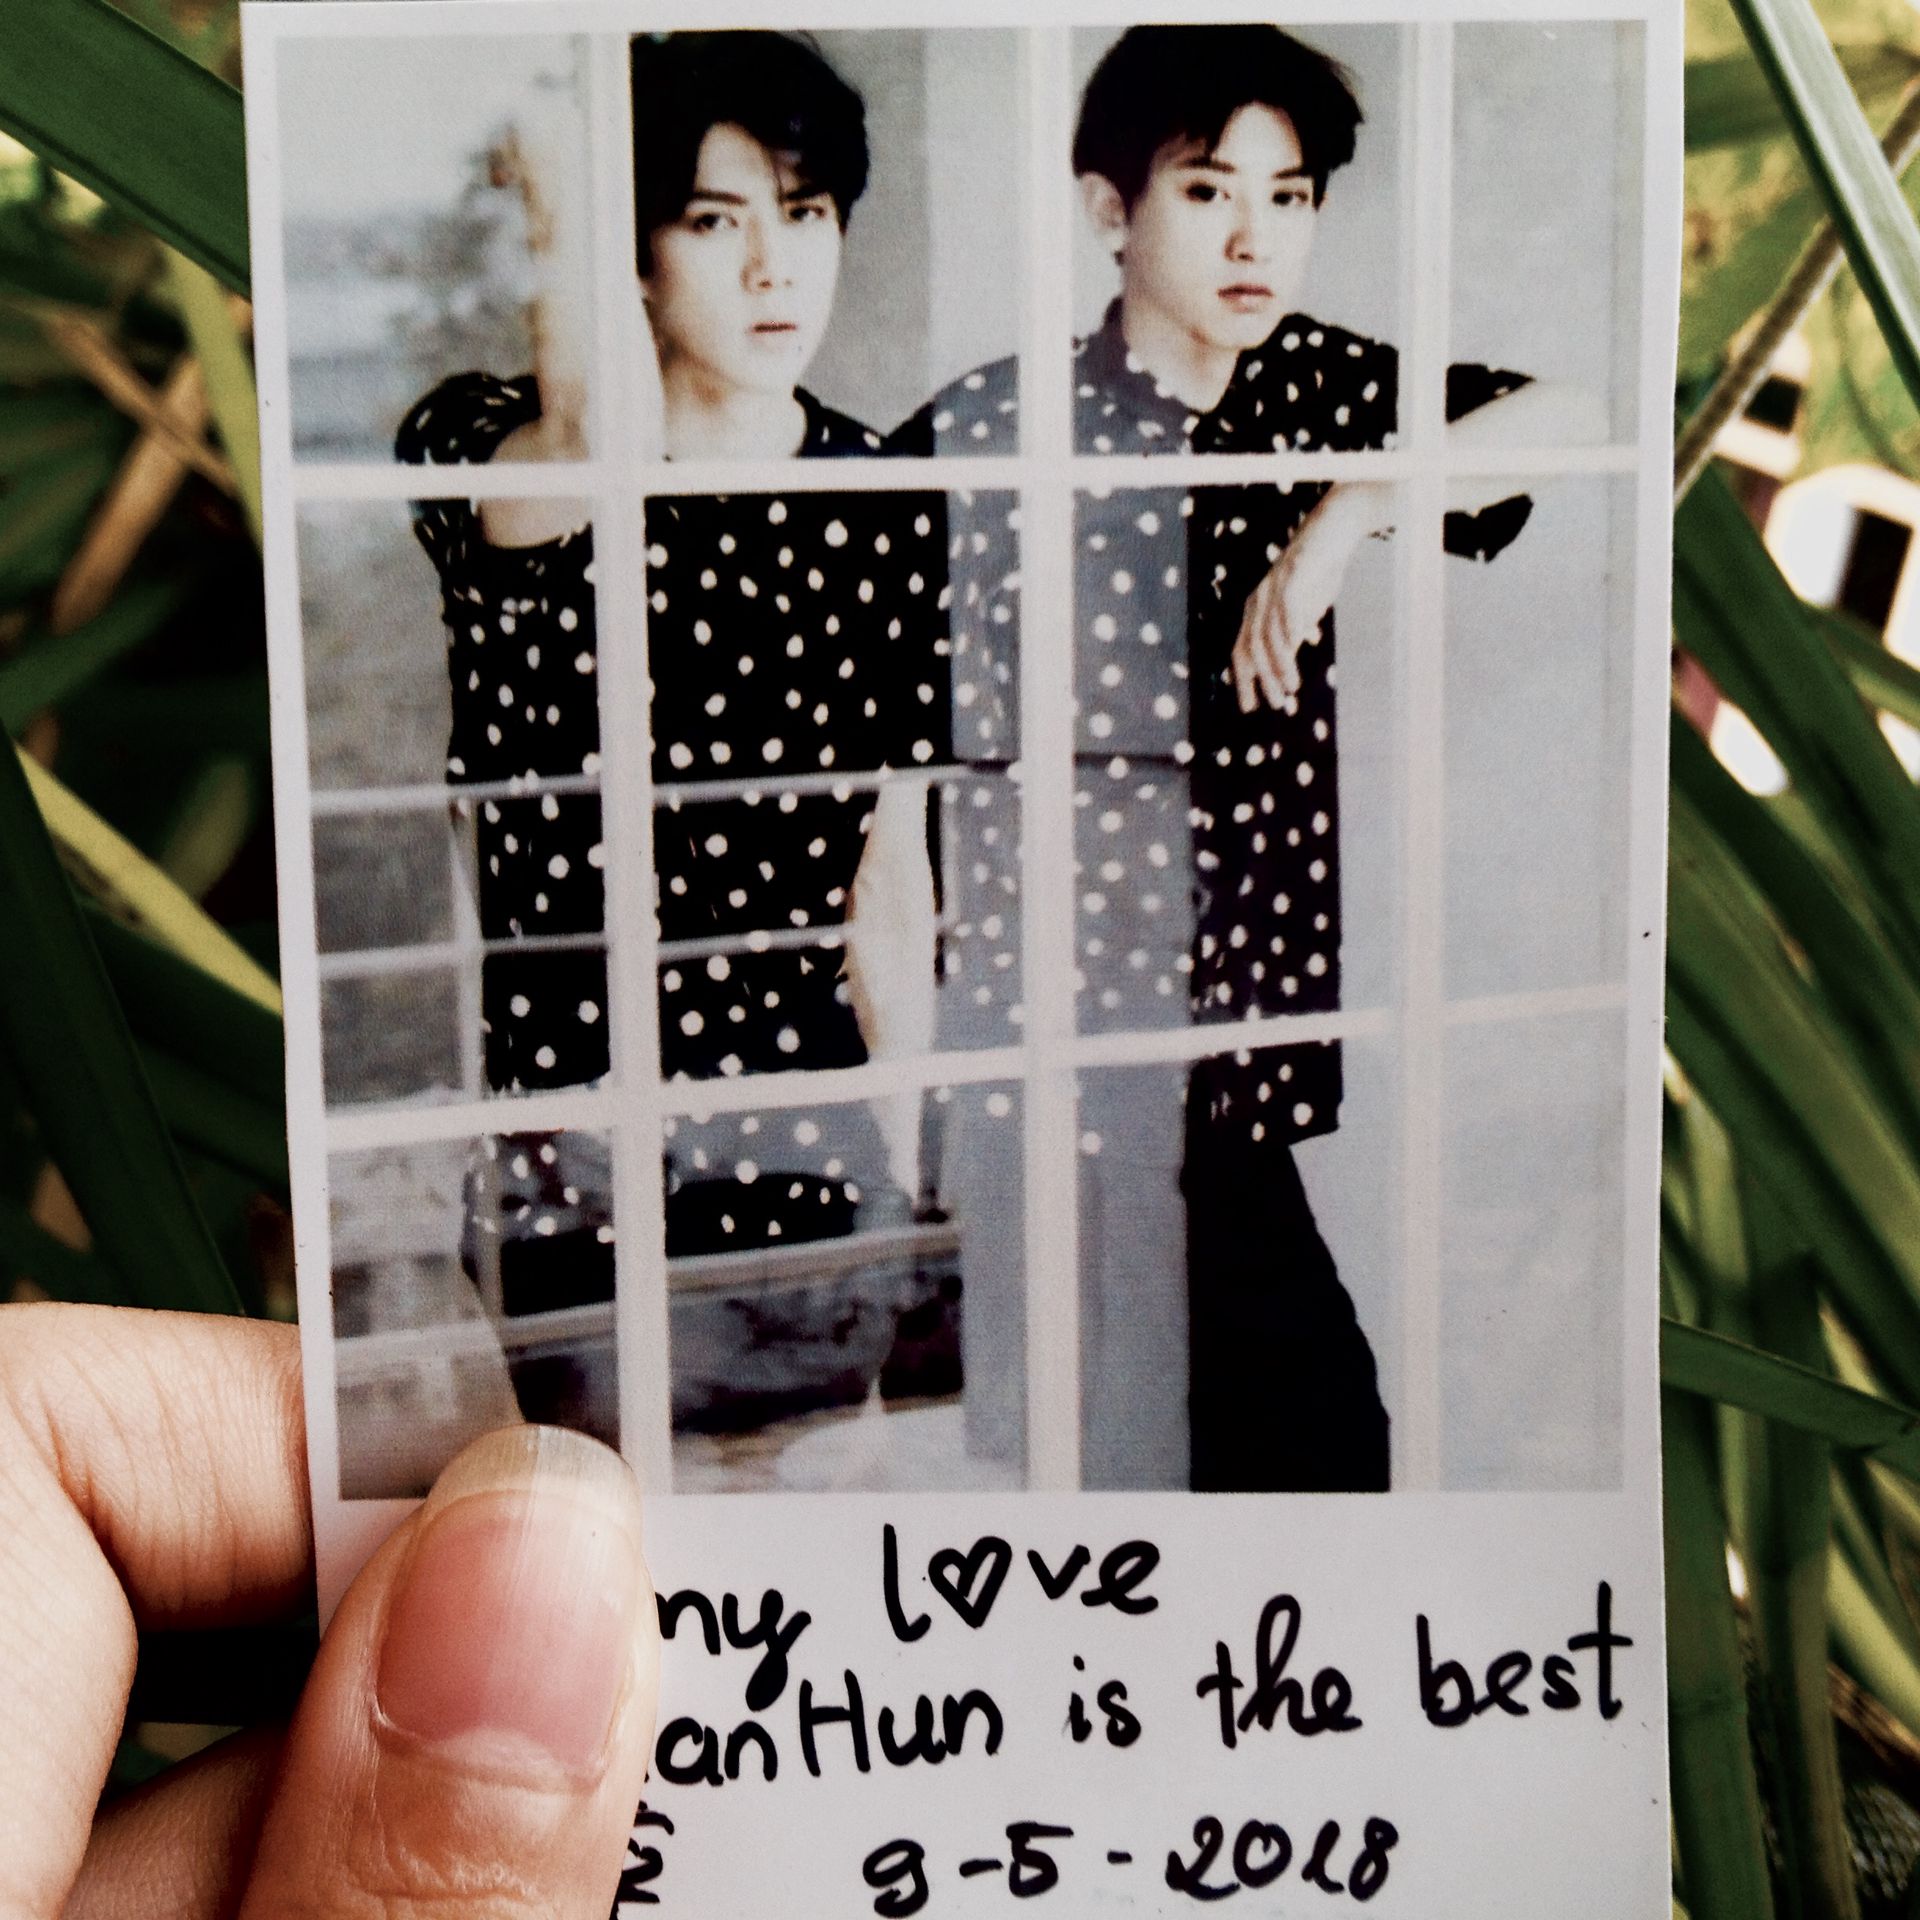 my love
anHun is the best
9-5-2018